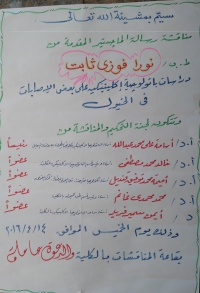 سيتم بمشيئة الله تعالى
مناقشة رسالة الماجيستير المقدمة من
ط.ب/ نورا فوزى ثابت
دراسات باثولوجية إكلينيكية على بعض الإصابات
فى الخيول
وستكون لجنة التحكيم والمناقشة من
أ.د/ أسامة على محمد عبدالله رئيساً
أ.د/ خالد محمد مصطفى عضواً
أ.د/ أمين محمد عضواً
أ.د/ محمد صبحى غانم عضواً
د/ أيمن سمير فريد عضواً
وذلك يوم الخميس الموافق ٢٠١٦/٤/١٤
بقاعة المناقشات بالكلية والدعوة عامة